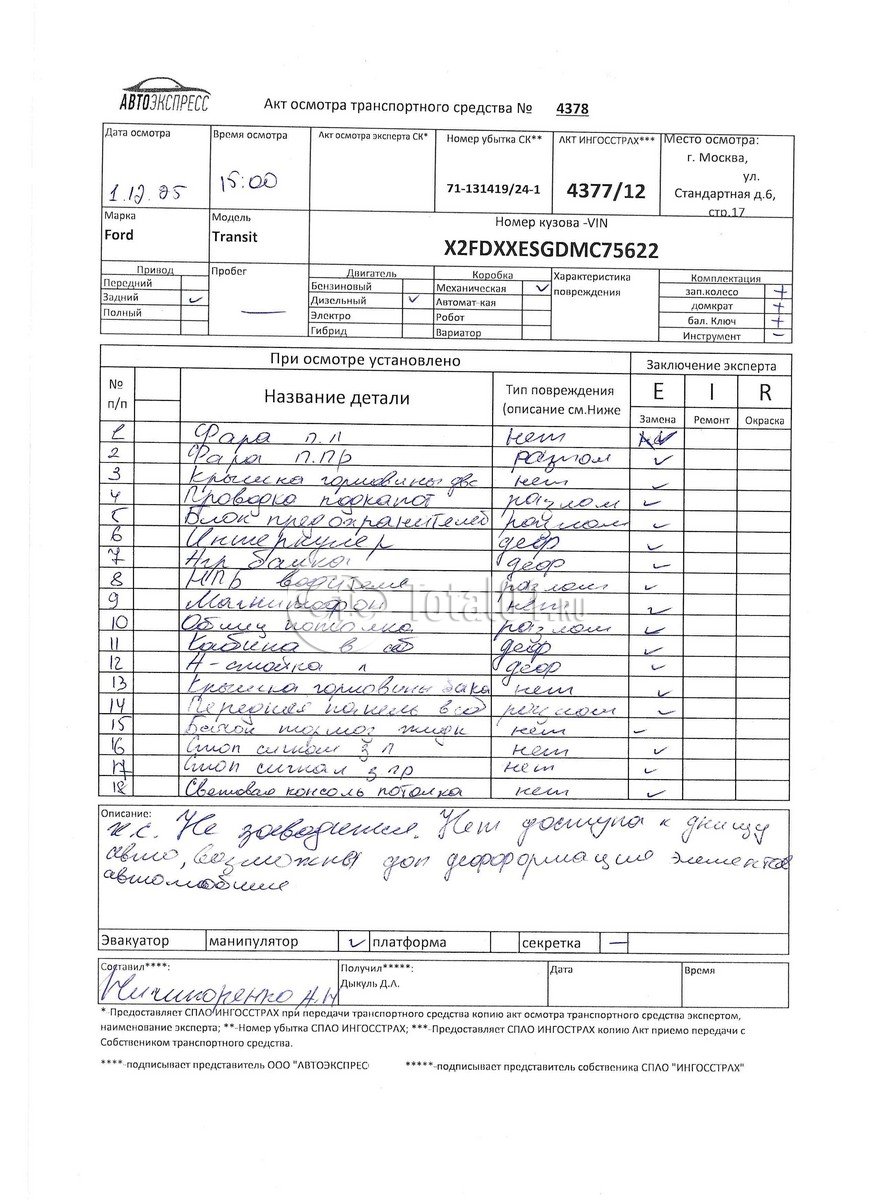 АВТОЭКСПРЕСС
Акт осмотра транспортного средства № 4378
Дата осмотра
1.12.25
Время осмотра
15:00
Акт осмотра эксперта СК*
Номер убытка СК**
71-131419/24-1
АКТ ИНГОССТРАХ***
4377/12
Место осмотра:
г. Москва,
ул.
Стандартная д.6,
стр.17
Марка
Ford
Модель
Transit
Номер кузова -VIN
X2FDXXESGDMC75622
Привод
Передний
Задний ✓
Полный
Пробег
—
Двигатель
Бензиновый
Дизельный ✓
Электро
Гибрид
Коробка
Механическая ✓
Автомат-кая
Робот
Вариатор
Характеристика
повреждения
Комплектация
зап.колесо +
домкрат +
бал. Ключ +
Инструмент –
При осмотре установлено
Заключение эксперта
№
п/п
Название детали
Тип повреждения
(описание см.Ниже
E I R
Замена Ремонт Окраска
1 Фара п.л нет ✓
2 Фара п.пр разлом ✓
3 Крышка горловины двс нет ✓
4 Проводка подкапот разлом ✓
5 Блок предохранителей разлом ✓
6 Интеркулер деф ✓
7 балка деф ✓
8 НПБ водителя разлом ✓
9 Магнитофон нет ✓
10 Облиц потолка разлом ✓
11 Кабина в сб деф ✓
12 А-стойка л деф ✓
13 Крышка горловины бака нет ✓
14 Передняя панель в сб разлом ✓
15 Бачок тормоз жидк нет ✓
16 Стоп сигнал з л нет ✓
17 Стоп сигнал з пр нет ✓
18 Световая консоль потолка нет ✓
Описание:
н.с. Не заводится. Нет доступа к днищу
авто, возможны доп деформация элементов
автомобиля
Эвакуатор манипулятор ✓ платформа секретка —
Составил****:
Получил*****:
Дыкуль Д.Л.
Дата
Время
*-Предоставляет СПАО ИНГОССТРАХ при передачи транспортного средства копию акт осмотра транспортного средства экспертом,
наименование эксперта; **-Номер убытка СПАО ИНГОССТРАХ; ***-Предоставляет СПАО ИНГОСТРАХ копию Акт приемо передачи с
Собствеником транспортного средства.
****-подписывает представитель ООО "АВТОЭКСПРЕС
*****-подписывает представитель собственика СПАО "ИНГОССТРАХ"